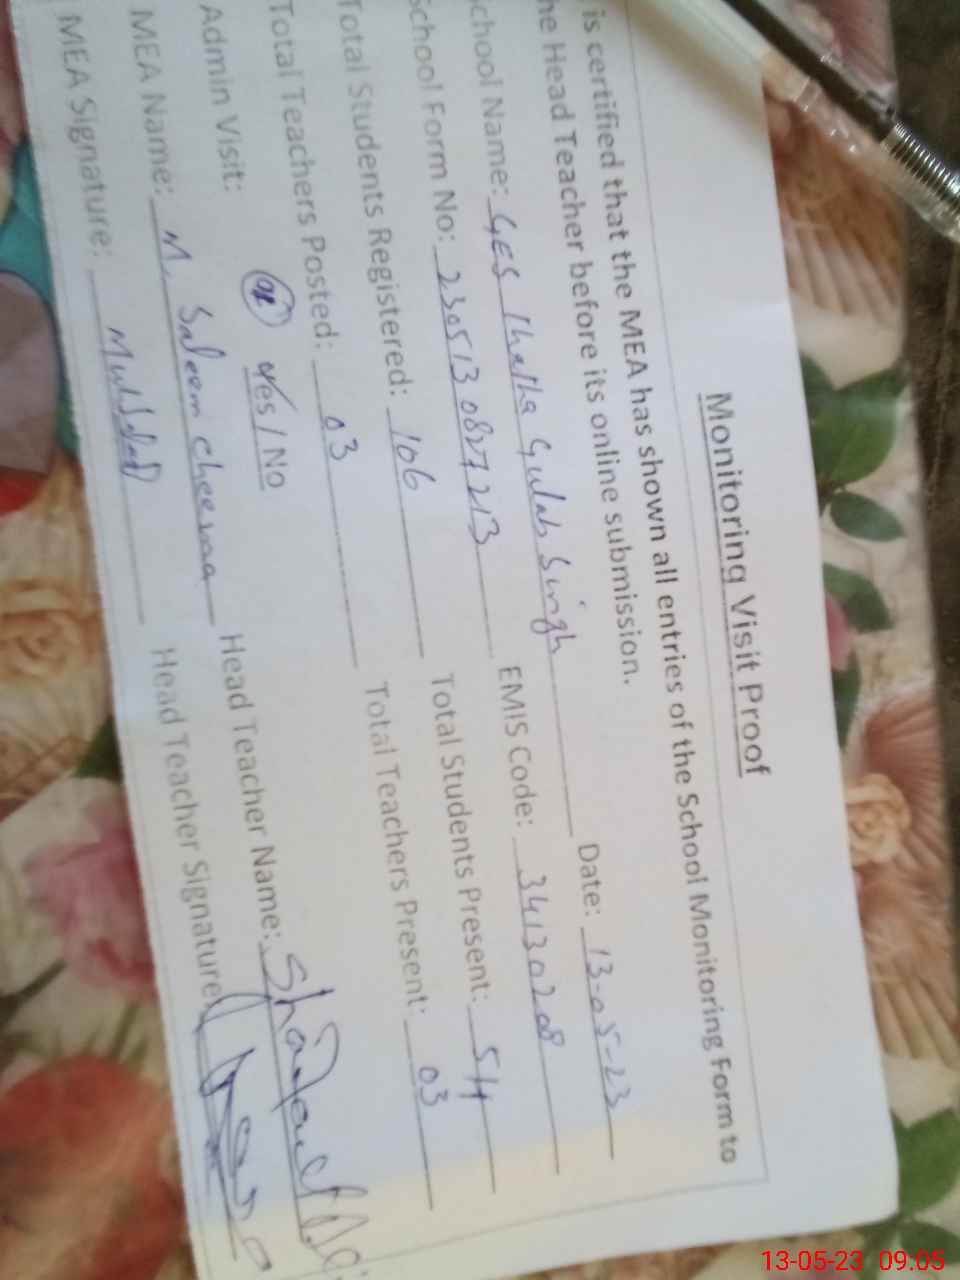 Monitoring Visit Proof
is certified that the MEA has shown all entries of the School Monitoring Form to
he Head Teacher before its online submission.
chool Name: GES Thatha Gulab Singh Date: 13-05-23
School Form No: 2305130827213 EMIS Code: 34130208
Total Students Registered: 106 Total Students Present: 54
Total Teachers Posted: 03 Total Teachers Present: 03
Admin Visit: Yes / No
MEA Name: M. Saleem cheema Head Teacher Name:
MEA Signature: Head Teacher Signature:
13-05-23 09:05